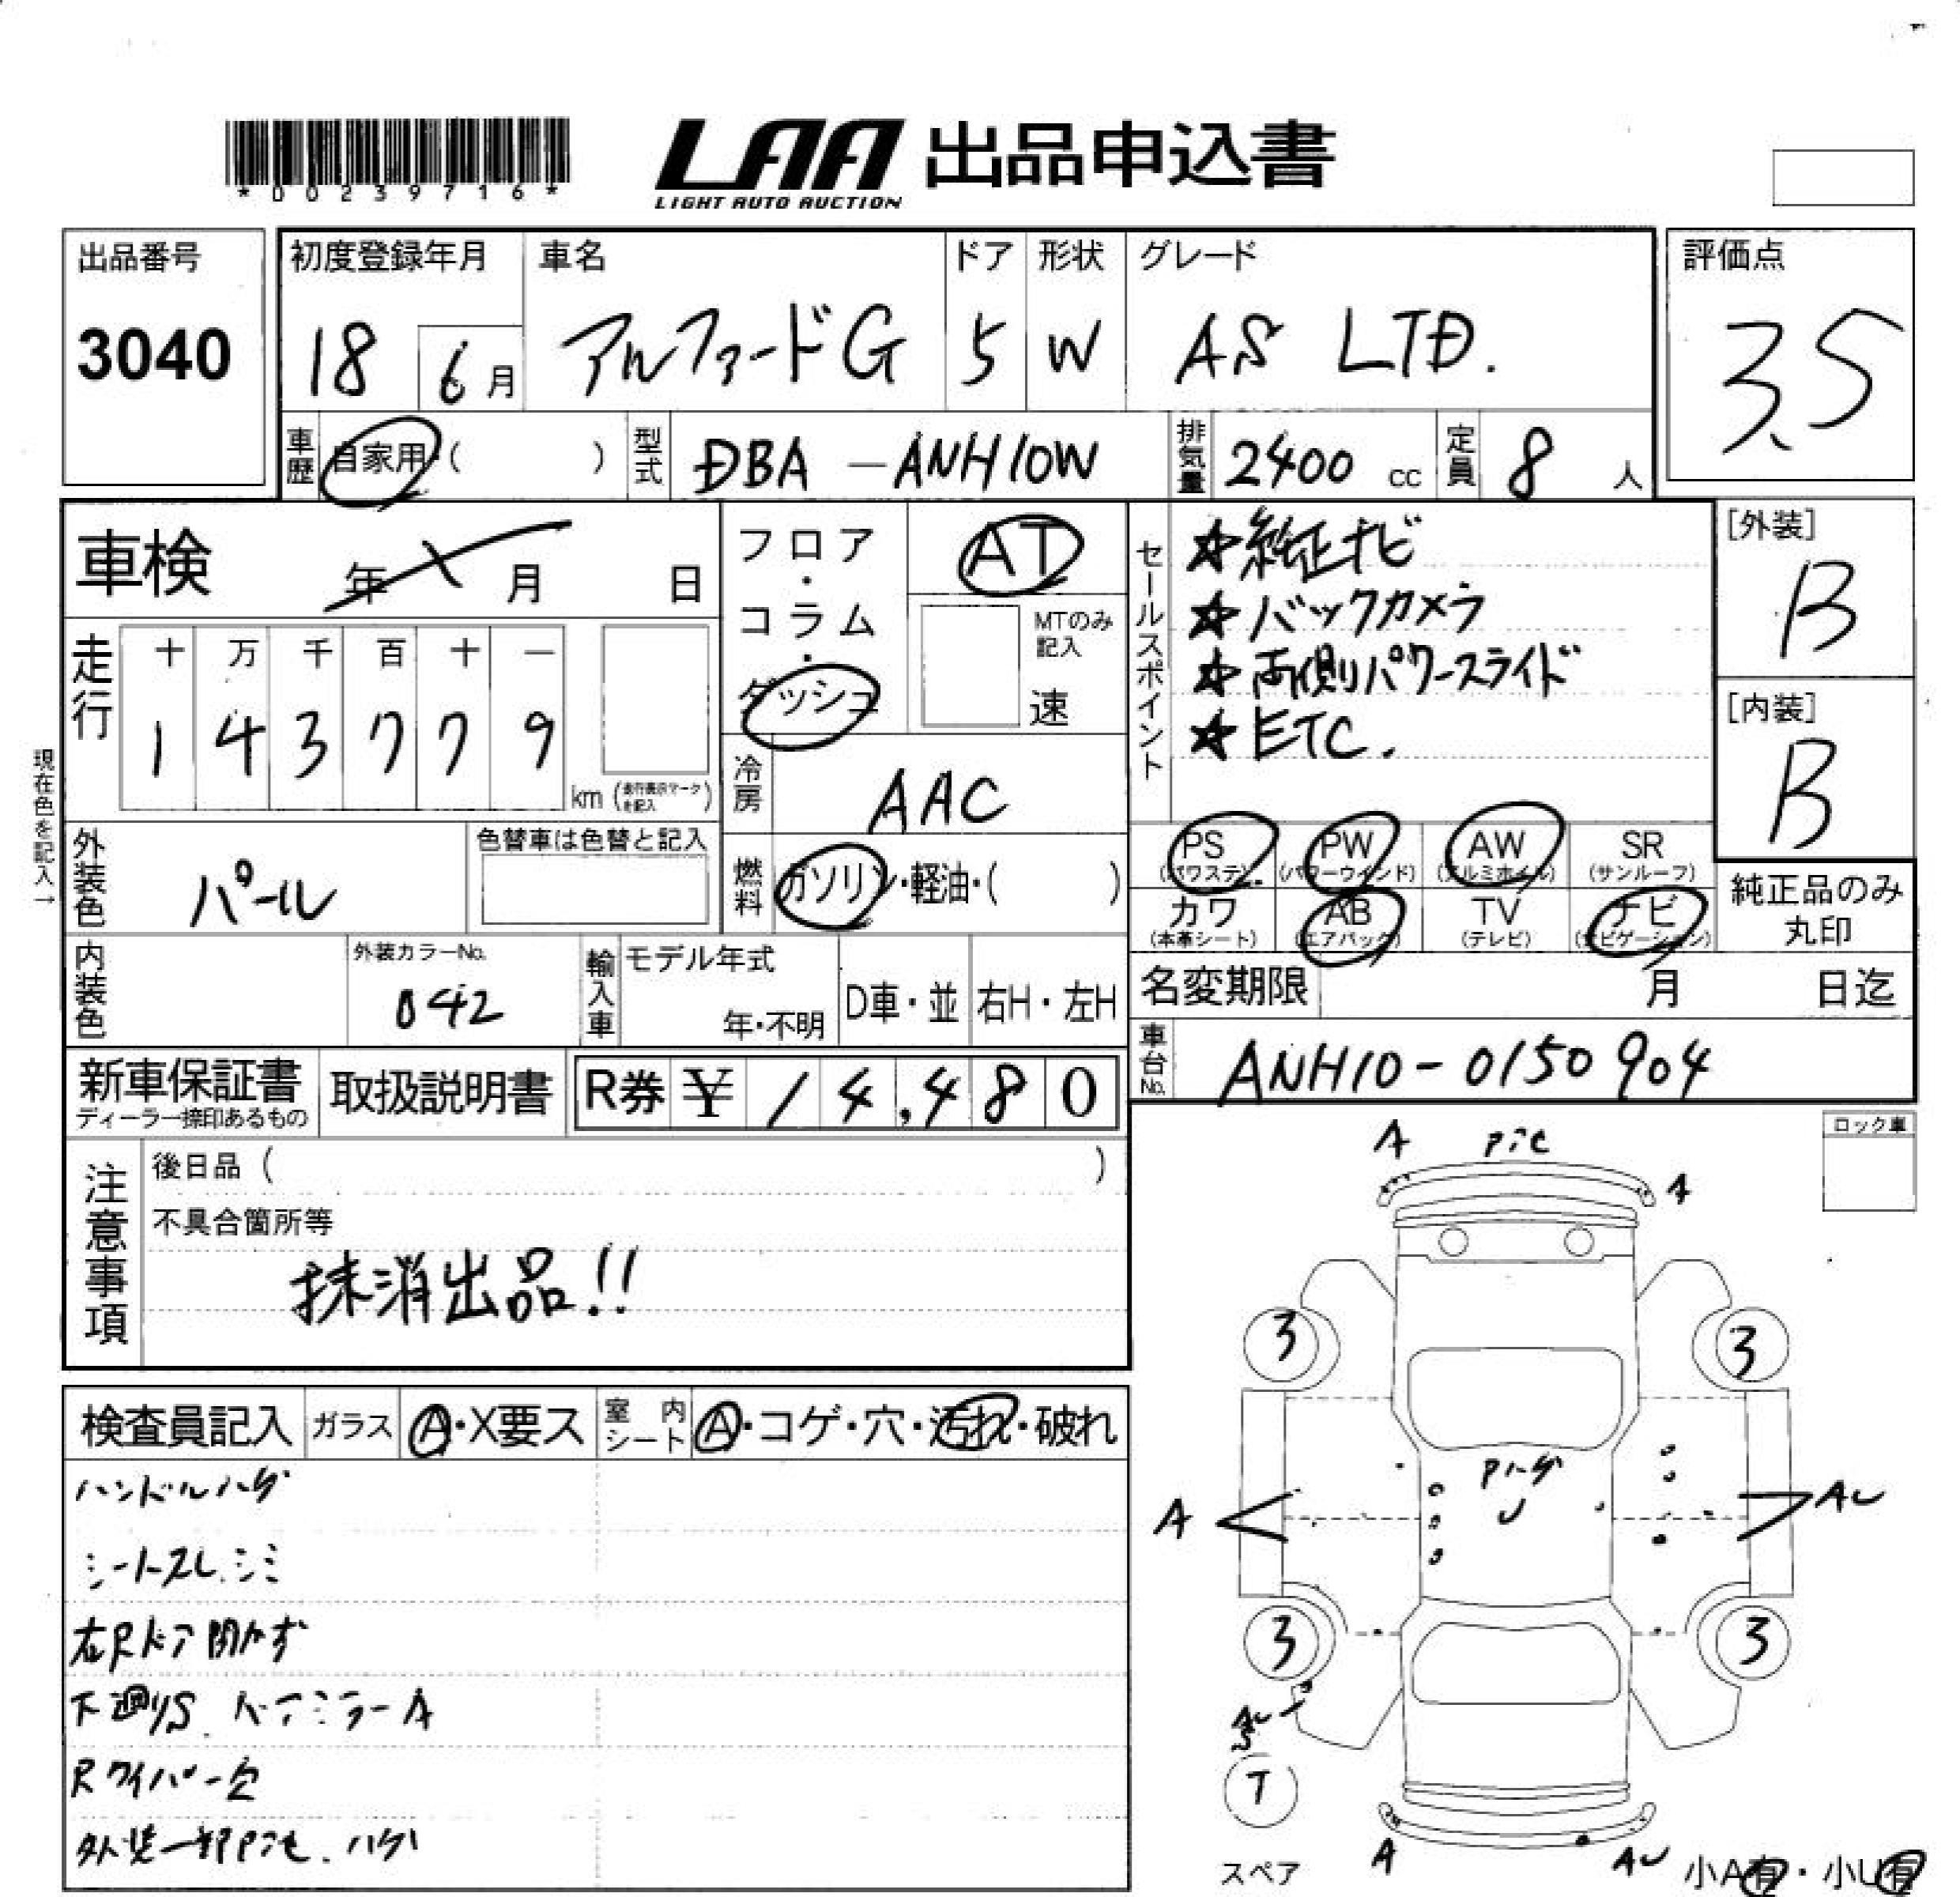 *00239716*
LAA 出品申込書
LIGHT AUTO AUCTION
出品番号
3040
初度登録年月
18 6月
車名
アルファードG
ドア
5
形状
W
グレード
AS LTD.
評価点
3.5
車歴 自家用・( )
型式 DBA-ANH10W
排気量 2400 cc
定員 8 人
車検 年 月 日
フロア・コラム・ダッシュ
AT
MTのみ記入
速
セールスポイント
☆純正ナビ
☆バックカメラ
☆両側パワースライド
☆ETC.
[外装]
B
[内装]
B
走行
十 万 千 百 十 一
1 4 3 7 7 9
km (走行表示マークを記入)
現在色を記入→
冷房 AAC
外装色 パール
色替車は色替と記入
燃料 ガソリン・軽油・( )
PS (パワステ)
PW (パワーウインド)
AW (アルミホイル)
SR (サンルーフ)
カワ (本革シート)
AB (エアバック)
TV (テレビ)
ナビ (ナビゲーション)
純正品のみ丸印
内装色
外装カラーNo.
042
輸入車
モデル年式
年・不明
D車・並
右H・左H
名変期限 月 日迄
車台No. ANH10-0150904
新車保証書
ディーラー捺印あるもの
取扱説明書
R券 ¥ 14,480
注意事項
後日品 ( )
不具合箇所等
抹消出品!!
ロック車
検査員記入
ガラス A・X要ス
室内シート A・コゲ・穴・汚れ・破れ
ハンドルハゲ
シートスレ.シミ
右Rドア開かず
下廻りS. ドアミラーA
Rワイパー欠
外装一部Pヤセ.ハゲ
A
A
3
3
Pハゲ
U
A
AU
3
3
AU
S
T
スペア
A
AU
小A有・小U有